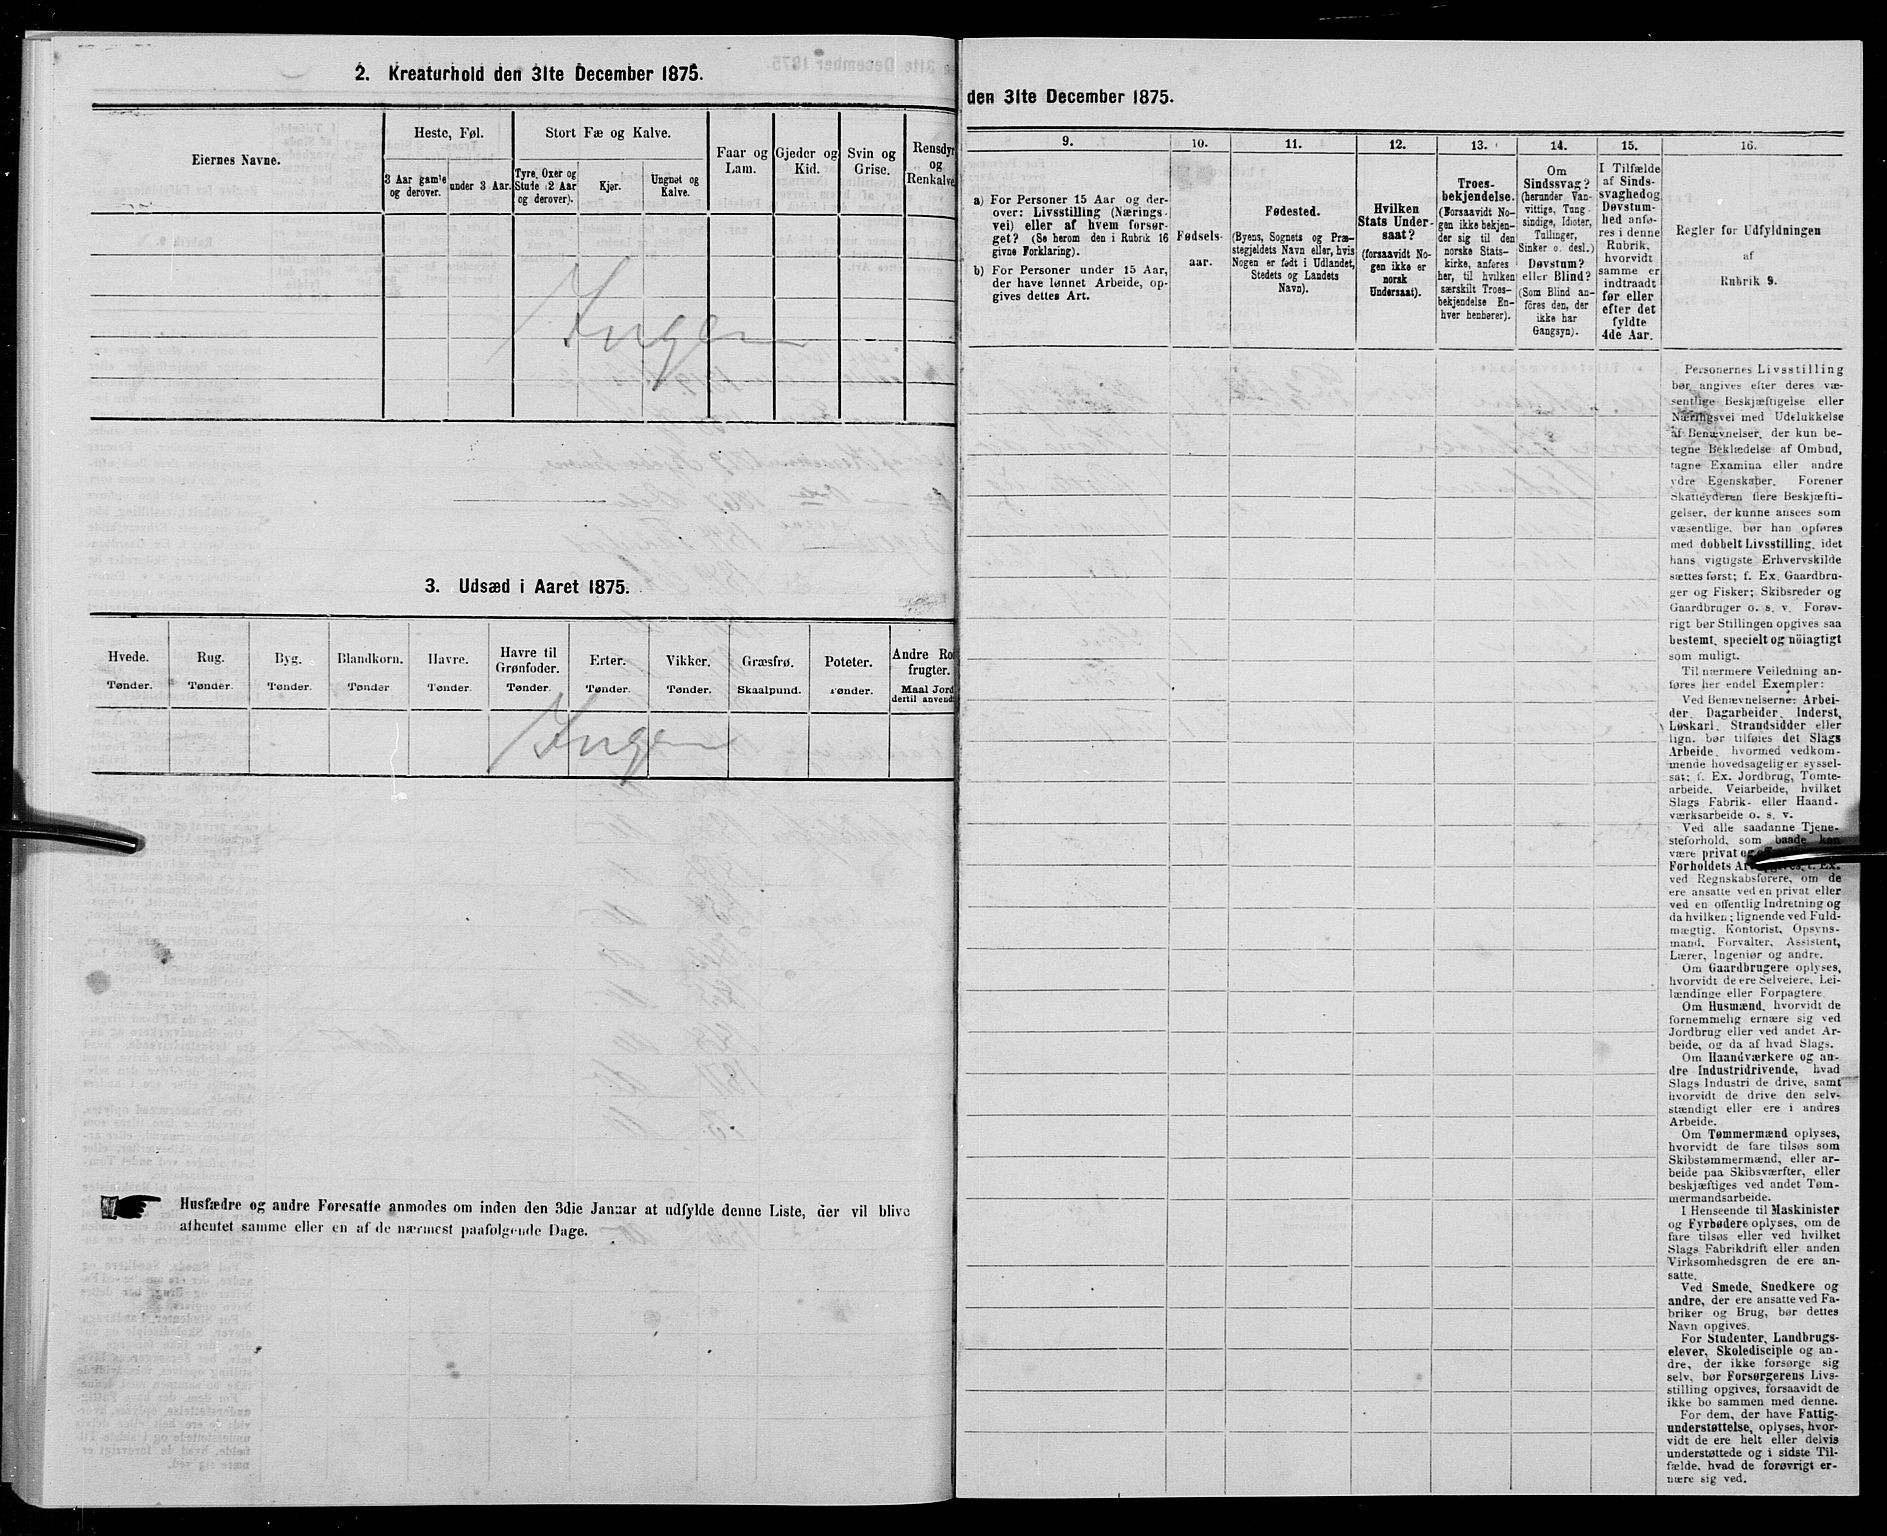 2. Kreaturhold den 31te December 1875.
Eiernes Navne.
Heste, Føl.
3 Aar gamle
og derover.
under 3 Aar.
Stort Fæ og Kalve.
Tyre, Oxer og
Stude (2 Aar
og derover).
Kjør.
Ungnøt og
Kalve.
Faar og
Lam.
Gjeder og
Kid.
Svin og
Grise.
Rensdyr
og
Renkalve
Ingen
3. Udsæd i Aaret 1875.
Hvede.
Tønder.
Rug.
Tønder.
Byg.
Tønder.
Blandkorn.
Tønder
Havre.
Tønder.
Havre til
Grønfoder.
Tønder.
Erter.
Tønder.
Vikker.
Tønder.
Græsfrø.
Skaalpund.
Poteter.
Tønder.
Andre Ro
frugter.
Maal Jord
dertil anvend
Ingen
Husfædre og andre Foresatte anmodes om inden den 3die Januar at udfylde denne Liste, der vil blive
afhentet samme eller en af de nærmest paafølgende Dage.
den 31te December 1875.
9.
a) For Personer 15 Aar og der-
over: Livsstilling (Nærings-
vei) eller af hvem forsør-
get? (Se herom den i Rubrik 16
givne Forklaring).
b) For Personer under 15 Aar,
der have lønnet Arbeide, op-
gives dettes Art.
10.
Fødsels-
aar.
11.
Fødested.
(Byens, Sognets og Præ-
stegjeldets Navn eller, hvis
Nogen er født i Udlandet,
Stedets og Landets
Navn).
12.
Hvilken
Stats Under-
saat?
(forsaavidt No-
gen ikke er
norsk
Undersaat).
13.
Troes-
bekjendelse.
(Forsaavidt No-
gen ikke bekjen-
der sig til den
norske Stats-
kirke, anføres
her, til hvilken
særskilt Troes-
bekjendelse En-
hver henhører).
14.
Om
Sindssvag?
(herunder Van-
vittige, Tung-
sindige, Idioter,
Tullinger,
Sinker o. desl.)
Døvstum?
eller Blind?
(Som Blind an-
føres den, der
ikke har
Gangsyn).
15.
I Tilfælde
af Sinds-
svaghedog
Døvstum-
hed anfø-
res i denne
Rubrik,
hvorvidt
samme er
indtraadt
før eller
efter det
fyldte
4de Aar.
16.
Regler for Udfyldningen
af
Rubrik 9.
Personernes Livsstilling
bør angives efter deres væ-
sentlige Beskjæftigelse eller
Næringsvei med Udelukkelse
af Benævnelser, der kun be-
tegne Beklædelse af Ombud,
tagne Examina eller andre
ydre Egenskaber. Forener
Skatteyderen flere Beskjæfti-
gelser, der kunne ansees som
væsentlige, bør han opføres
med dobbelt Livsstilling, idet
hans vigtigste Erhvervskilde
sættes først; f. Ex. Gaardbru-
ger og Fisker; Skibsreder og
Gaardbruger o. s. v. Forøv-
rigt bør Stillingen opgives saa
bestemt, specielt og nöiagtigt
som muligt.
Til nærmere Veiledning an-
føres her endel Exempler:
Ved Benævnelserne: Arbei-
der, Dagarbeider, Inderst,
Løskarl, Strandsidder eller
lign. bør tilføies det Slags
Arbeide, hvormed vedkom-
mende hovedsagelig er syssel-
sat; f. Ex. Jordbrug, Tomte-
arbeide, Veiarbeide, hvilket
Slags Fabrik- eller Haand-
værksarbeide o. s. v.
Ved alle saadanne Tjene-
steforhold, som baade kan
være privat og
Forholdets Art f. Ex.
ved Regnskabsførere, om de
ere ansatte ved en privat eller
ved en offentlig Indretning og
da hvilken; lignende ved Fuld-
mægtig, Kontorist, Opsyns-
mand, Forvalter, Assistent,
Lærer, Ingeniør og andre.
Om Gaardbrugere oplyses,
hvorvidt de ere Selveiere, Lei-
lændinge eller Forpagtere.
Om Husmænd, hvorvidt de
fornemmelig ernære sig ved
Jordbrug eller ved andet Ar-
beide, og da af hvad Slags.
Om Haandværkere og an-
dre Industridrivende, hvad
Slags Industri de drive, samt
hvorvidt de drive den selv-
stændigt eller ere i andres
Arbeide.
Om Tømmermænd oplyses,
hvorvidt de fare tilsøs som
Skibstømmermænd, eller ar-
beide paa Skibsværfter, eller
beskjæftiges ved andet Tøm-
mermandsarbeide.
I Henseende til Maskinister
og Fyrbødere oplyses, om de
fare tilsøs eller ved hvilket
Slags Fabrikdrift eller anden
Virksomhedsgren de ere an-
satte.
Ved Smede, Snedkere og
andre, der ere ansatte ved Fa-
briker og Brug, bør dettes
Navn opgives.
For Studenter, Landbrugs-
elever, Skoledisciple og an-
dre, der ikke forsørge sig
selv, bør Forsørgerens Livs-
stilling opgives, forsaavidt de
ikke bo sammen med denne.
For dem, der have Fattig-
understøttelse, oplyses, hvor-
vidt de ere helt eller delvis
understøttede og i sidste Til-
fælde, hvad de forøvrigt er-
nære sig ved.